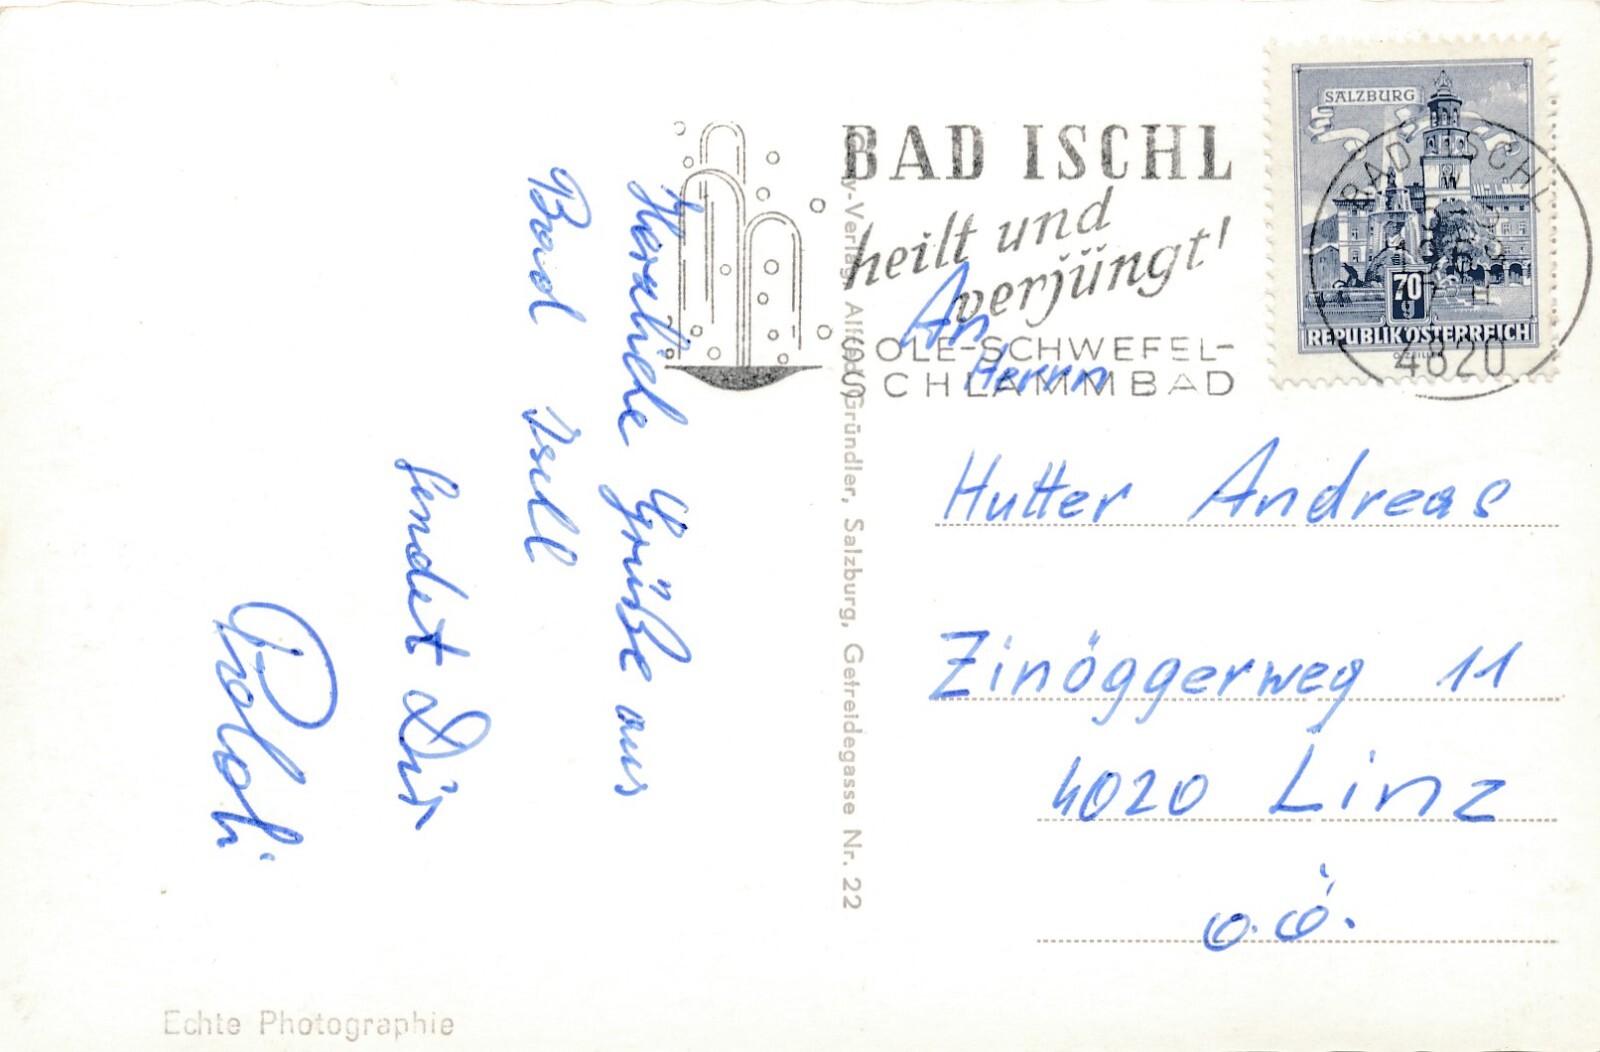 Herzliche Grüße aus
Bad Ischl
sendet Dir
BAD ISCHL
heilt und
verjüngt!
SOLE-SCHWEFEL-
SCHLAMMBAD
SALZBURG
70
g
REPUBLIK ÖSTERREICH
BAD ISCHL
4820
An
Herrn
Hutter Andreas
Zinöggerweg 11
4020 Linz
O.Ö.
Gründler, Salzburg, Getreidegasse Nr. 22
Echte Photographie